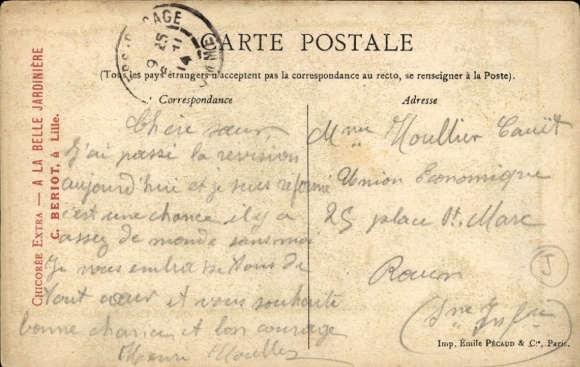 CARTE POSTALE
(Tous les pays étrangers n'acceptent pas la correspondance au recto, se renseigner à la Poste).
Correspondance
Adresse
CHICORÉE EXTRA — A LA BELLE JARDINIÈRE
C. BERIOT, à Lille.
9 25
14
Chère sœur,
J'ai passé la revision
aujourd'hui et je suis reformé
c'est une chance il y a
assez de monde sans moi
Je vous embrasse tous de
tout cœur et vous souhaite
bonne chance et bon courage
Henri
Mme Houllier
Union Economique
25 place St. Marc
Rouen
(Sne Infre)
J
Imp. Émile PÉCAUD & Cie, Paris.